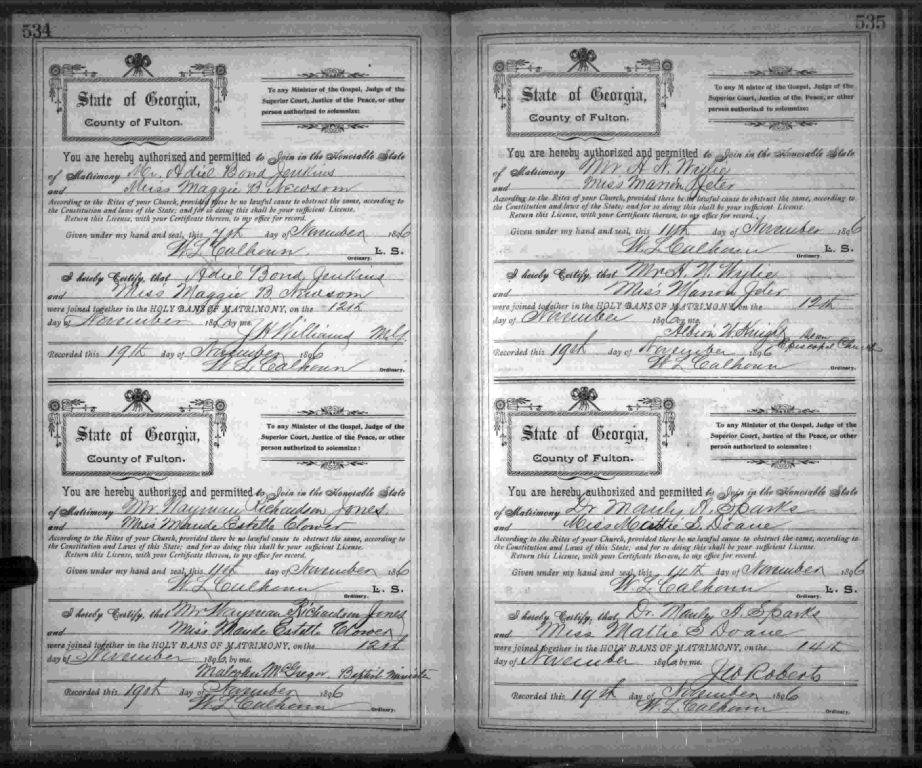 534
State of Georgia,
County of Fulton.
To any Minister of the Gospel, Judge of the
Superior Court, Justice of the Peace, or other
person authorized to solemnize:
You are hereby authorized and permitted to Join in the Honorable State
of Matrimony Mr. Adiel Bond Jenkins
and Miss Maggie B. Newsom
According to the Rites of your Church, provided there be no lawful cause to obstruct the same, according to
the Constitution and laws of the State; and for so doing this shall be your sufficient License.
Return this License, with your Certificate thereon, to my office for record.
Given under my hand and seal, this 7th day of November 1896
W. L. Calhoun L. S.
Ordinary.
I hereby Certify, that Adiel Bond Jenkins
and Miss Maggie B. Newsom
were joined together in the HOLY BANS OF MATRIMONY, on the 12th
day of November 1896 by me,
J H Williams M.G.
Recorded this 19th day of November 1896
W. L. Calhoun Ordinary.
State of Georgia,
County of Fulton.
To any Minister of the Gospel, Judge of the
Superior Court, Justice of the Peace, or other
person authorized to solemnize:
You are hereby authorized and permitted to Join in the Honorable State
of Matrimony Mr Wayman Richardson Jones
and Miss Maude Estelle Clower
According to the Rites of your Church, provided there be no lawful cause to obstruct the same, according to
the Constitution and Laws of this State; and for so doing this shall be your sufficient License.
Return this License, with your Certificate thereon, to my office for record.
Given under my hand and seal, this 11th day of November 1896
W. L. Calhoun L. S.
Ordinary.
I hereby Certify, that Mr Wayman Richardson Jones
and Miss Maude Estelle Clower
were joined together in the HOLY BANS OF MATRIMONY, on the 12th
day of November 1896, by me,
McGregor Baptist Minister
Recorded this 19th day of November 1896
W. L. Calhoun Ordinary.
535
State of Georgia,
County of Fulton.
To any Minister of the Gospel, Judge of the
Superior Court, Justice of the Peace, or other
person authorized to solemnize:
You are hereby authorized and permitted to Join in the Honorable State
of Matrimony Mr H. W. Wylie
and Miss Manon Jeter
According to the Rites of your Church, provided there be no lawful cause to obstruct the same, according to
the Constitution and laws of the State; and for so doing this shall be your sufficient License.
Return this License, with your Certificate thereon, to my office for record.
Given under my hand and seal, this 11th day of November 1896
W. L. Calhoun L. S.
Ordinary.
I hereby Certify, that Mr H. W. Wylie
and Miss Manon Jeter
were joined together in the HOLY BANS OF MATRIMONY, on the 12th
day of November 1896 by me,
Albion W. Knight Dean
Episcopal Church
Recorded this 19th day of November 1896
W. L. Calhoun Ordinary.
State of Georgia,
County of Fulton.
To any Minister of the Gospel, Judge of the
Superior Court, Justice of the Peace, or other
person authorized to solemnize:
You are hereby authorized and permitted to Join in the Honorable State
of Matrimony Dr Manly A. Sparks
and Miss Mattie S. Doane
According to the Rites of your Church, provided there be no lawful cause to obstruct the same, according to
the Constitution and Laws of this State; and for so doing this shall be your sufficient License.
Return this License, with your Certificate thereon, to my office for record.
Given under my hand and seal, this 14th day of November 1896
W. L. Calhoun L. S.
Ordinary.
I hereby Certify, that Dr. Manly A. Sparks
and Miss Mattie S Doane
were joined together in the HOLY BANS OF MATRIMONY, on the 14th
day of November 1896, by me,
J W Roberts
Recorded this 19th day of November 1896
W. L. Calhoun
Ordinary.